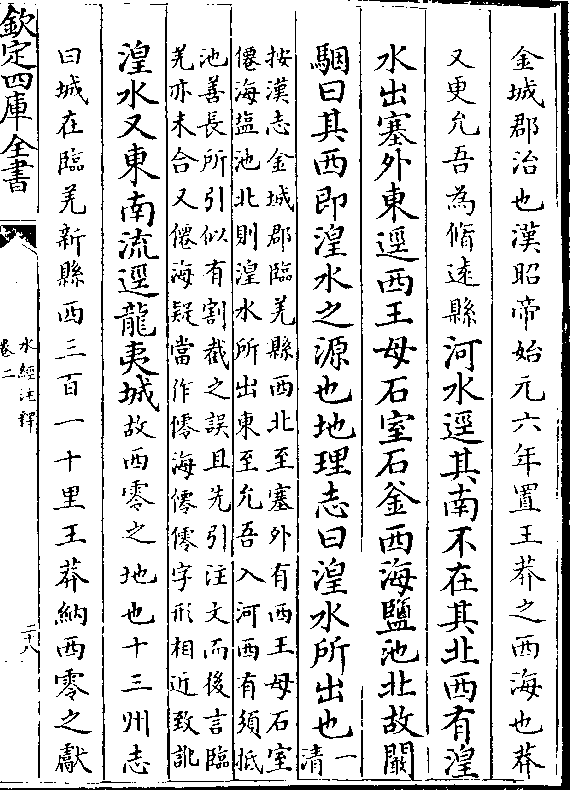 金城郡治也漢昭帝始元六年置王莽之西海也莽
又更允吾為脩逺縣河水逕其南不在其北西有湟
水出塞外東逕西王母石室石釜西海鹽池北故闞
駰曰其西即湟水之源也地理志曰湟水所出也一清
按漢志金城郡臨羌縣西北至塞外有西王母石室
僊海塩池北則湟水所出東至允吾入河西有須抵
池善長所引似有割截之誤且先引注文而後言臨
羌亦未合又僊海疑當作海僊字形相近致訛
湟水又東南流逕龍夷城故西零之地也十三州志
曰城在臨羌新縣西三百一十里王莽納西零之獻
欽定四庫全書
水經注釋
卷二
二十八